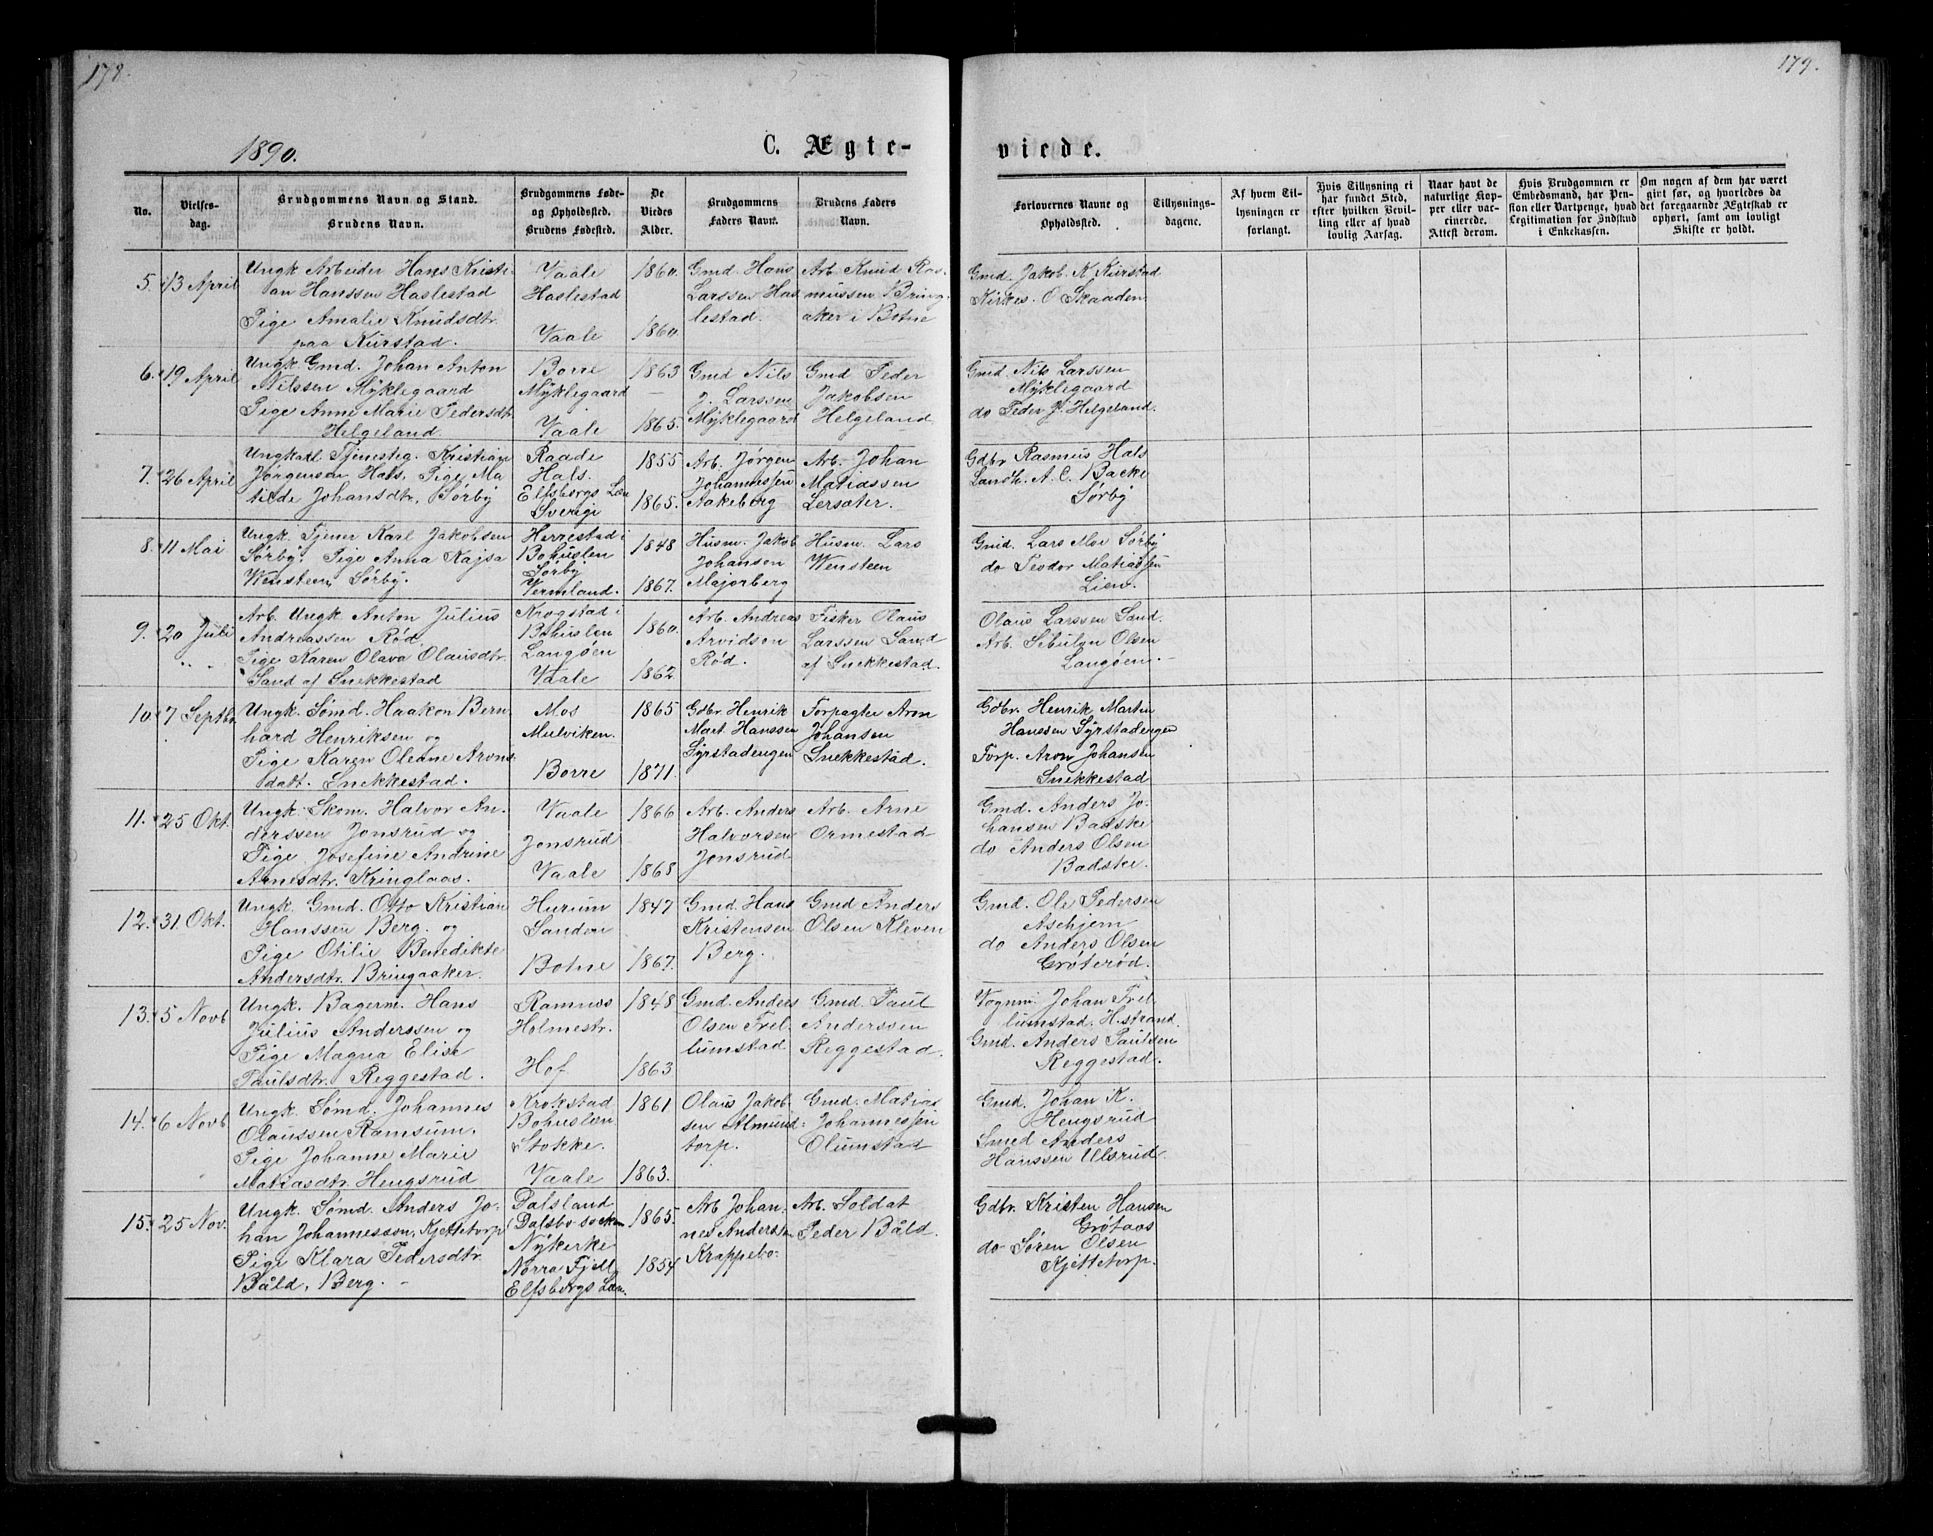 178.
179.
1890.
C. Ægte-
viede.
No.
Vielses-
dag.
Brudgommens Navn og Stand.
Brudens Navn.
Brudgommens Føde-
og Opholdsted.
Brudens Fødested.
De
Viedes
Alder.
Brudgommens
Faders Navn.
Brudens Faders
Navn.
Forlovernes Navne og
Opholdsted.
Tillysnings-
dagene.
Af hvem Til-
lysningen er
forlangt.
Hvis Tillysning ei
har fundet Sted,
efter hvilken Bevil-
ling eller af hvad
lovlig Aarsag.
Naar havt de
naturlige Kop-
per eller vac-
cinerede.
Attest derom.
Hvis Brudgommen er
Embedsmand, har Pen-
sion eller Vartpenge, hvad
Legitimation for Indskud
i Enkekassen.
Om nogen af dem har været
gift før, og hvorledes da
det foregaaende Ægteskab er
ophørt, samt om lovligt
Skifte er holdt.
5. 13 April
Ungk Arbeider Hans Kristi-
an Hanssen Haslestad
Pige Amalie Knudsdtr.
paa Kirstad.
Vaale
Haslestad
Vaale
1860.
1860
Gmd. Hans
Larssen Has
lestad.
Arb. Knud Ras-
mussen Bring-
aker i Botne
Gmd. Jakob K. Kirstad
Kirkes. O Skaaden
6. 19 April
Ungk. Gmd. Johan Anton
Nilssen Myklegaard
Pige Anne Marie Pedersdtr
Helgeland.
Borre
Myklegaard
Vaale
1863
1865.
Gmd Nils
J. Larssen
Myklegaard
Gmd Peder
Jakobsen
Helgeland
Gmd. Nils Larssen
Myklegaard
do Peder J. Helgeland.
7. 26 April
Ungkarl Tjenestg. Kristian
Jørgensen Hals. Pige Ma
tilde Johansdtr. Sørby
Raade
Hals.
Elfsborgs Læn
Sverige
1855
1865.
Arb. Jørgen
Johannessen
Aakeberg
Arb. Johan
Matiassen
Lersæter.
Gdbr Rasmus Hals
Landh. A. C. Backe
Sørby
8. 11 Mai
Ungk. Tjener Karl Jakobsen
Sørby. Pige Anna Kajsa
Wensteen, Sørby.
Herrestad i
Bohuslen
Sørby
Vermland.
1848
1867.
Husm. Jakob
Johansen
Majorberg
Husm. Lars
Wensteen
Gmd. Lars Moe Sørby
do Teodor Matiassen
Lien.
9. 20 Juli
Arb. Ungk Anton Julius
Andreassen Rød
Pige Karen Olava Olausdtr.
Sand af Snekkestad
Krogstad i
Bohuslen
Langøen
Vaale
1860.
1862.
Arb. Andreas
Arvidson
Rød.
Fisker Olaus
Larssen Sand
af Snekkestad.
Olaus Larssen Sand.
Arb. Sibulon Olsen
Langøen.
10. 7 Septbr.
Ungk. Sømd. Haakon Bern-
hard Henriksen og
Pige Karen Oleane Arons-
datt. Snekkestad.
Mos
Mulviken.
Borre
1865
1871.
Gdbr. Henrik
Mart. Hanssen
Syrstadengen
Forpagter Aron
Johansen
Snekkestad.
Gdbr. Henrik Martin
Hanssen Syrstadengen
Forp. Aron Johansen
Snekkestad
11. 25 Okt.
Ungk. Skom. Halvor An-
derssen Jonsrud og
Pige Josefine Andrine
Arnesdtr. Kringlaas.
Vaale
Jonsrud
Vaale
1866
1868
Arb. Anders
Halvorsen
Jonsrud
Arb. Arne
Ormestad
Gmd. Anders Jo-
hansen Badske
do Anders Olsen
Badske.
12. 31 Okt.
Ungk. Gmd. Otto Kristian
Hanssen Berg. og
Pige Otilie Benedikte
Andersdtr. Bringaaker.
Hurum
Sanden
Botne
1847
1867.
Gmd. Hans
Kristensen
Berg.
Gmd Anders
Olsen Kleven
Gmd. Ole Pedersen
Aschjem
do Anders Olsen
Grøterød.
13. 5 Novb
Ungk. Bagerm. Hans
Julius Anderssen og
Pige Magna Elise
Paulsdtr. Reggestad.
Ramnes
Holmestr.
Hof
1848
1863
Gmd. Anders
Olsen Frel-
lumstad
Gmd. Paul
Anderssen
Reggestad.
Vognm. Johan Frel-
lumstad. H.strand.
Gmd. Anders Paulsen
Reggestad.
14. 6 Novb
Ungk. Sømd. Johannes
Olaussen Ramsum.
Pige Johanne Marie
Matiasdtr. Hengsrud
Krokstad
Bohuslæn
Stokke.
Vaale
1861
1863.
Olaus Jakob-
sen Almund:
torp.
Gmd. Matias
Johannessen
Olumstad
Gmd. Johan K.
Hengsrud
Smed Anders
Hanssen Ulsrud.
15. 25 Nov.
Ungk. Sømd. Anders Jo-
han Johannesson, Kjettetorp
Pige Klara Pedersdtr.
Båld, Berg.
Dalsland
Dalsbo socken
Nykerke
Norra Fjell
Elfsborgs Læn.
1865.
1854
Arb Johan-
nes Anderssen
Krappebo.
Arb. Soldat
Peder Båld.
Gdbr. Kristen Hansen
Grøtaas
do Søren Olsen
Kjettetorp.